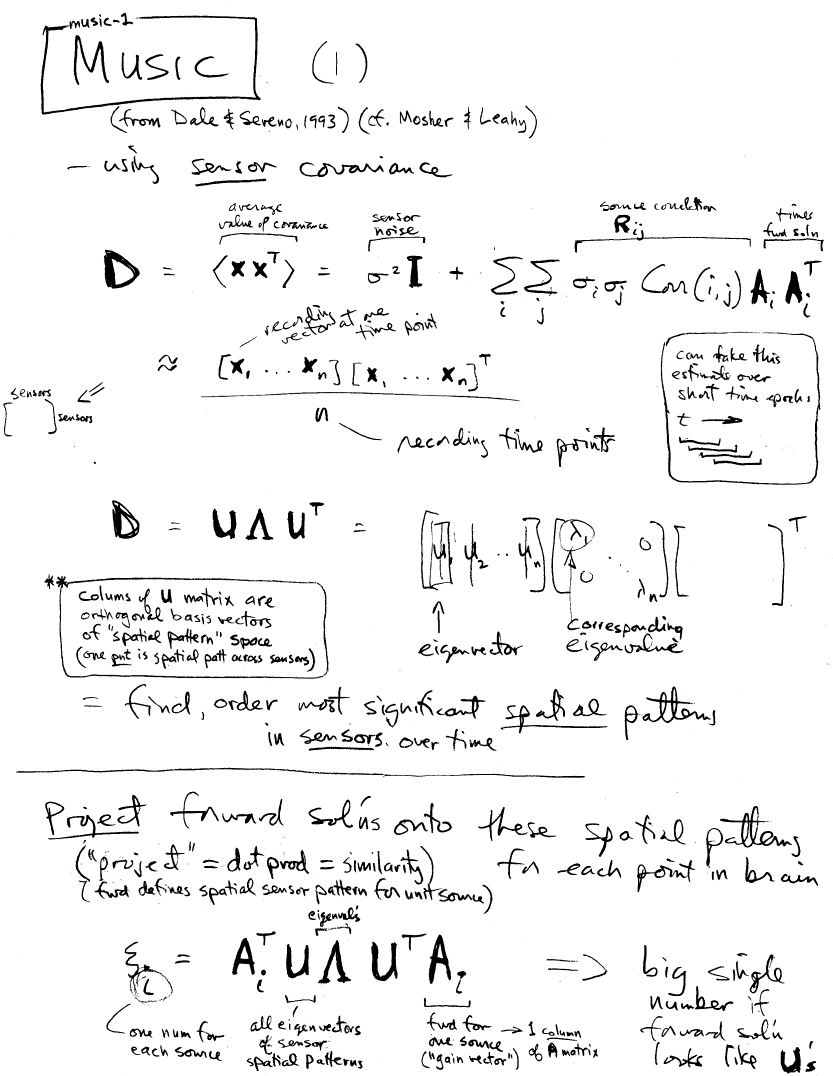 music-1
MUSIC (1)
(from Dale & Sereno, 1993) (cf. Mosher & Leahy)
– using sensor covariance
average
value of covariance
sensor
noise
source correlation
R_ij
times
fwd soln
D = ⟨x x^T⟩ = σ² I + Σ_i Σ_j σ_i σ_j Corr(i,j) A_i A_i^T
recording
vector at one
time point
≈ [x_1 ... x_n] [x_1 ... x_n]^T
n
recording time points
sensors
sensors
can take this
estimate over
short time epochs
t →
D = U Λ U^T = [u_1 u_2 .. u_n] [λ_1 0 ⋱ 0 λ_n] [ ]^T
eigenvector
corresponding
eigenvalue
**
colums of U matrix are
orthogonal basis vectors
of "spatial pattern" space
(one pnt is spatial patt across sensors)
= find, order most significant spatial patterns
in sensors over time
Project forward sol'ns onto these spatial patterns
("project" = dot prod = similarity) for each point in brain
(fwd defines spatial sensor pattern for unit source)
eigenval's
ξ_i = A_i^T U Λ U^T A_i ⇒ big single
number if
forward sol'n
looks like U's
one num for
each source
all eigenvectors
of sensor
spatial patterns
fwd for
one source
("gain vector")
→ 1 column
of A matrix